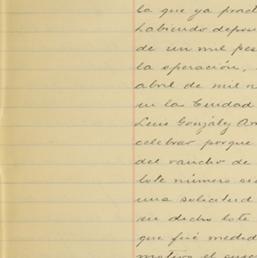 la que ya pract
habiendo depos
de un mil pes
la operación,
abril de mil n
en la Ciudad
Luis Gonzály Ar
celebrar porque
del rancho de
lote número
una solicitud
en dicho lote
que fué medid
motivo el